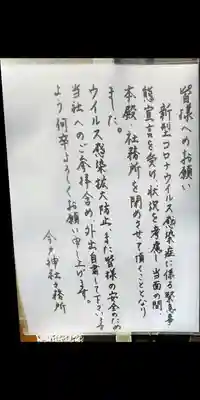 皆様へのお願い
新型コロナウイルス感染症に係る緊急事
態宣言を受け、状況を考慮し当面の間、
本殿・社務所を閉めさせて頂くこととなり
ました。
ウイルス感染拡大防止、また皆様の安全のため
当社へのご参拝含め、外出自粛して下さいます
よう何卒よろしくお願い申し上げます。
今戸神社社務所